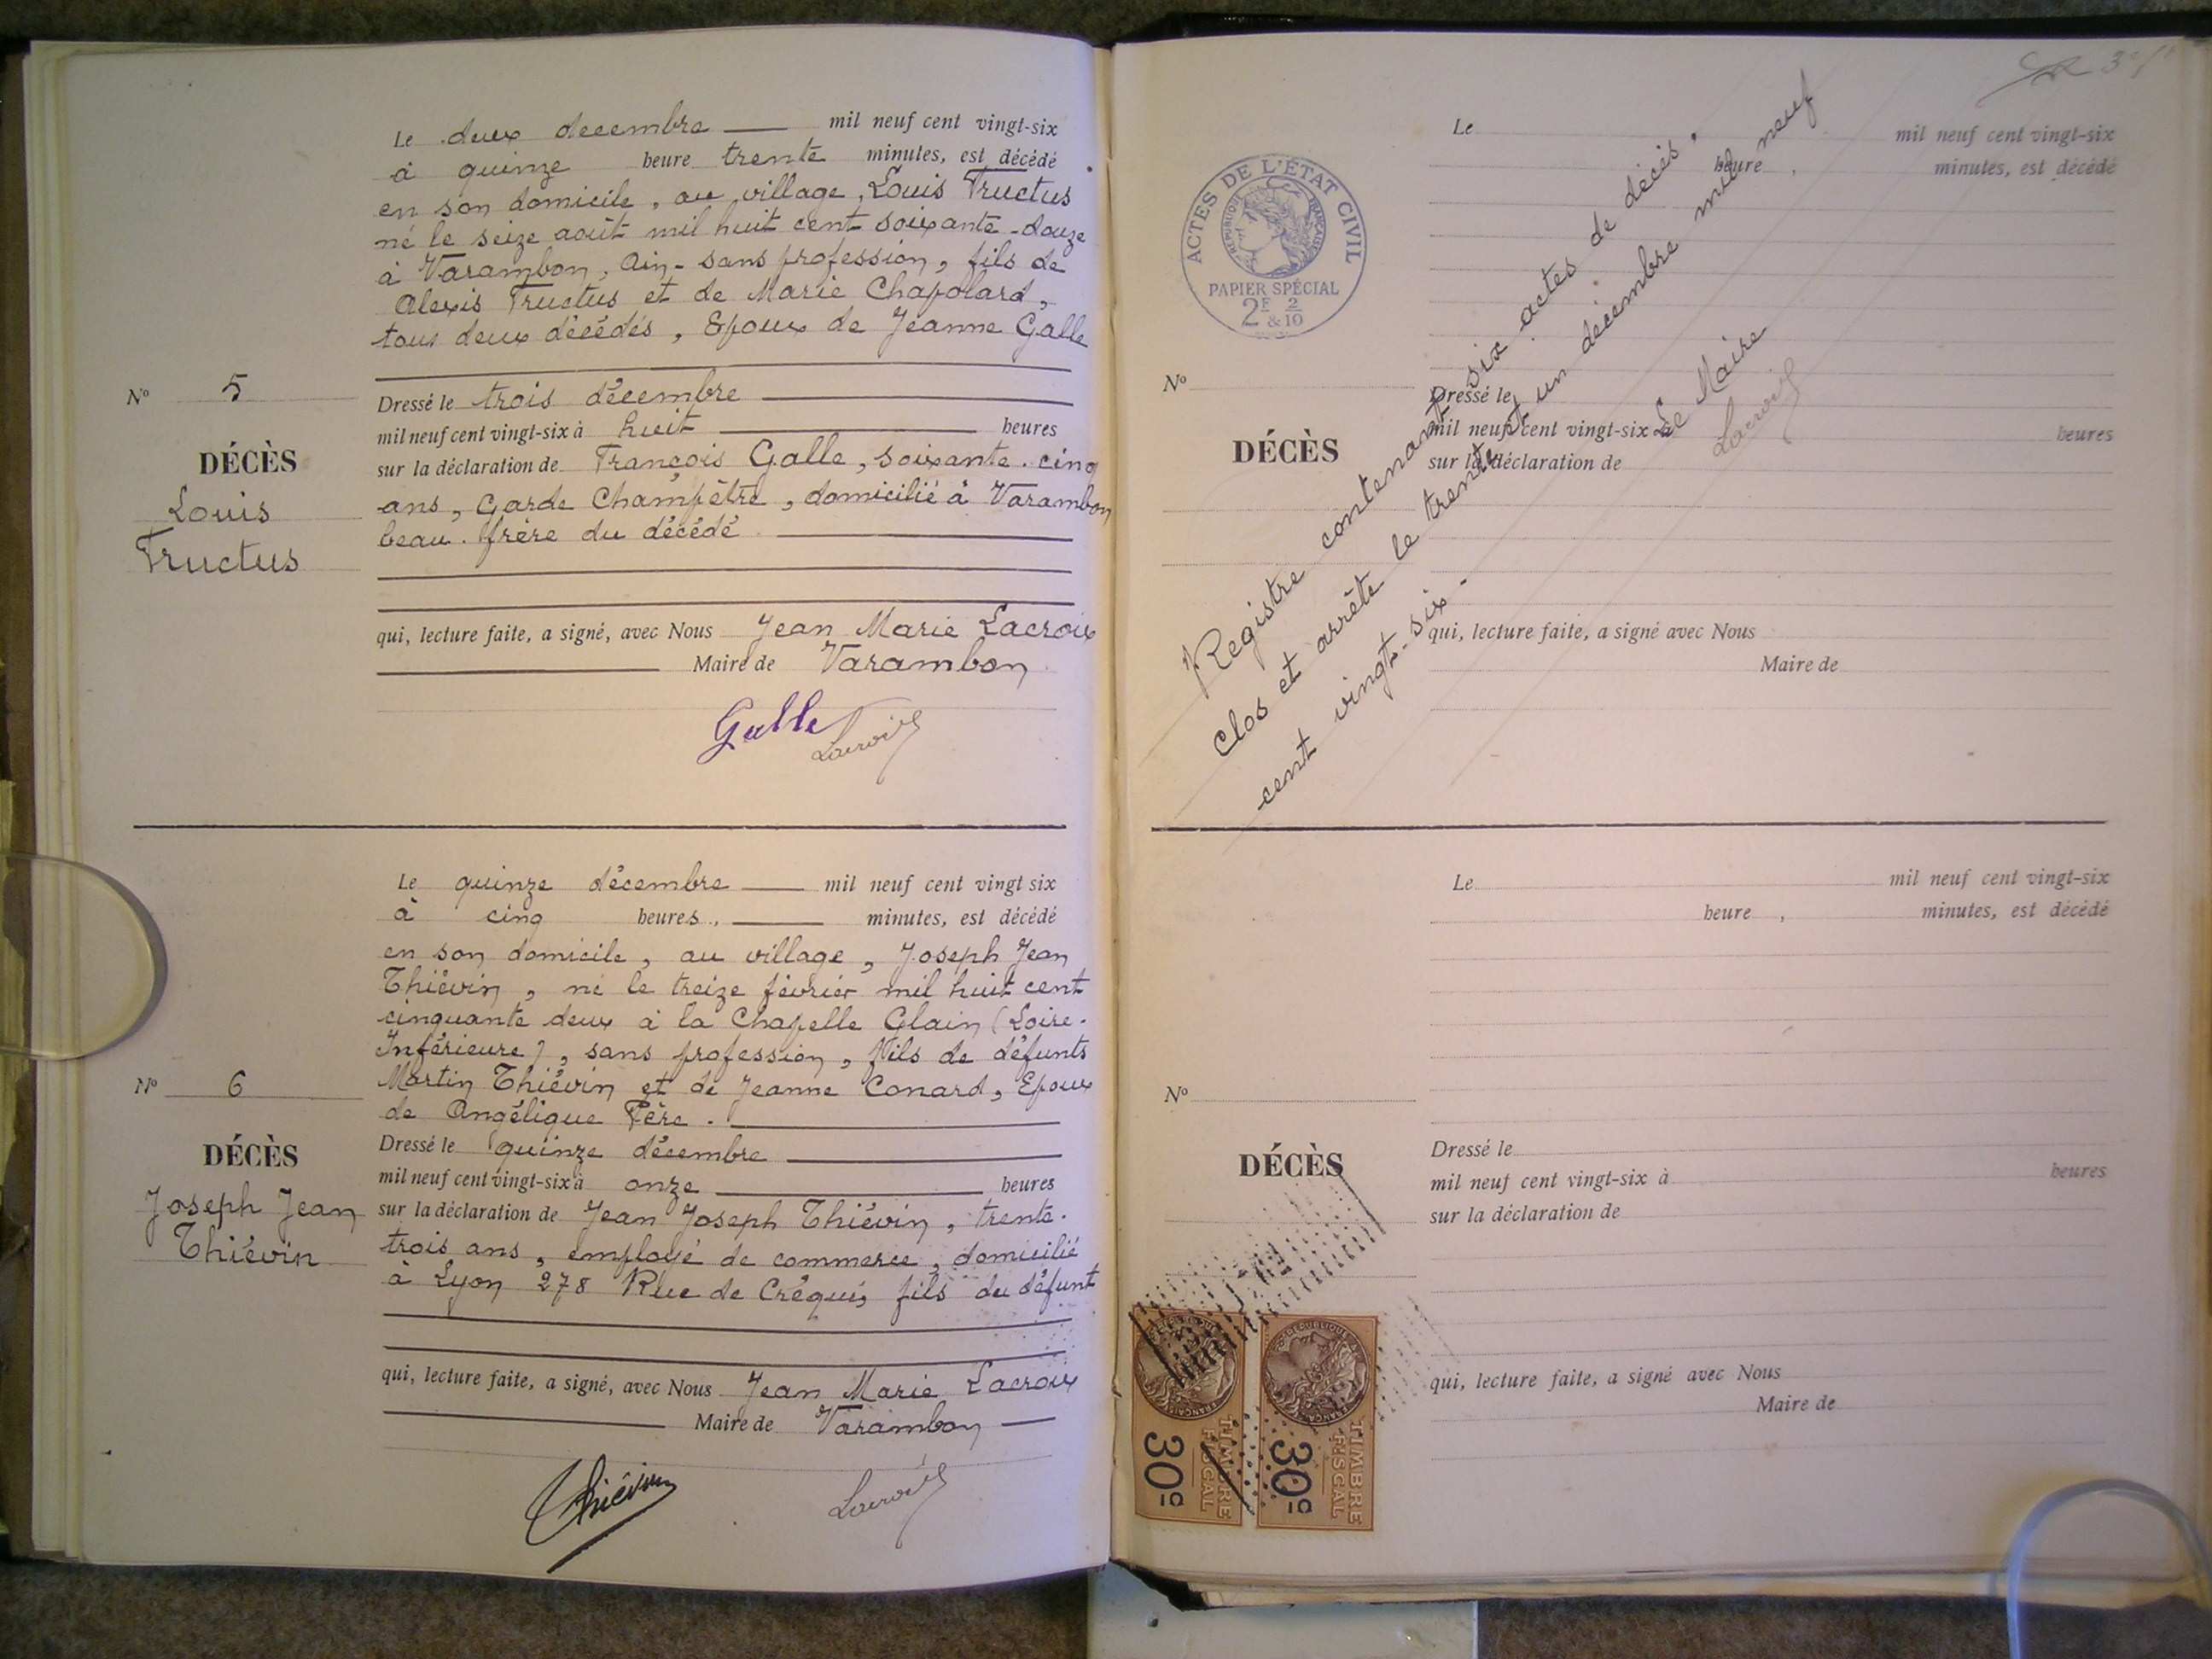 Le deux decembre mil neuf cent vingt-six
à quinze heure trente minutes, est décédé
en son domicile, au village, Louis Fructus
né le seize août mil huit cent soixante-douze
à Varambon, Ain - sans profession, fils de
Alexis Fructus et de Marie Chapolard,
tous deux décédés, Epoux de Jeanne Galle
Nº 5
DÉCÈS
Louis
Fructus
Dressé le trois décembre
mil neuf cent vingt-six à huit heures
sur la déclaration de François Galle, soixante-cinq
ans, Garde Champêtre, domicilié à Varambon
beau-frère du décédé
qui, lecture faite, a signé, avec Nous Jean Marie Lacroix
Maire de Varambon
Galle Lacroix
Le quinze décembre mil neuf cent vingt six
à cinq heures, minutes, est décédé
en son domicile, au village, Joseph Jean
Thiévin, né le treize février mil huit cent
cinquante deux à la Chapelle Glain (Loire-
Inférieure), sans profession, fils de défunts
Martin Thiévin et de Jeanne Conard, Epoux
de Angélique Père.
Nº 6
DÉCÈS
Joseph Jean
Thiévin
Dressé le quinze décembre
mil neuf cent vingt-six à onze heures
sur la déclaration de Jean Joseph Thiévin, trente-
trois ans, employé de commerce, domicilié
à Lyon 278 Rue de Créqui, fils du défunt
qui, lecture faite, a signé, avec Nous Jean Marie Lacroix
Maire de Varambon
Thiévin Lacroix
ACTES DE L'ÉTAT CIVIL
RÉPUBLIQUE FRANÇAISE
PAPIER SPÉCIAL
2F & 2/10
Le mil neuf cent vingt-six
heure, minutes, est décédé
Nº
DÉCÈS
Dressé le
mil neuf cent vingt-six à heures
sur la déclaration de
qui, lecture faite, a signé avec Nous
Maire de
Registre contenant six actes de décès.
clos et arrête le trente et un décembre mil neuf
cent vingt-six-
Le Maire
Lacroix
Le mil neuf cent vingt-six
heure, minutes, est décédé
Nº
DÉCÈS
Dressé le
mil neuf cent vingt-six à heures
sur la déclaration de
qui, lecture faite, a signé avec Nous
Maire de
TIMBRE
FISCAL
30c
TIMBRE
FISCAL
30c